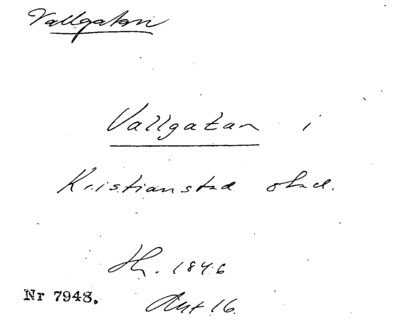 Vallgatan
Vallgatan i
Kristianstad stad.
Th. 1846
Nr 7948.
Aut 16.